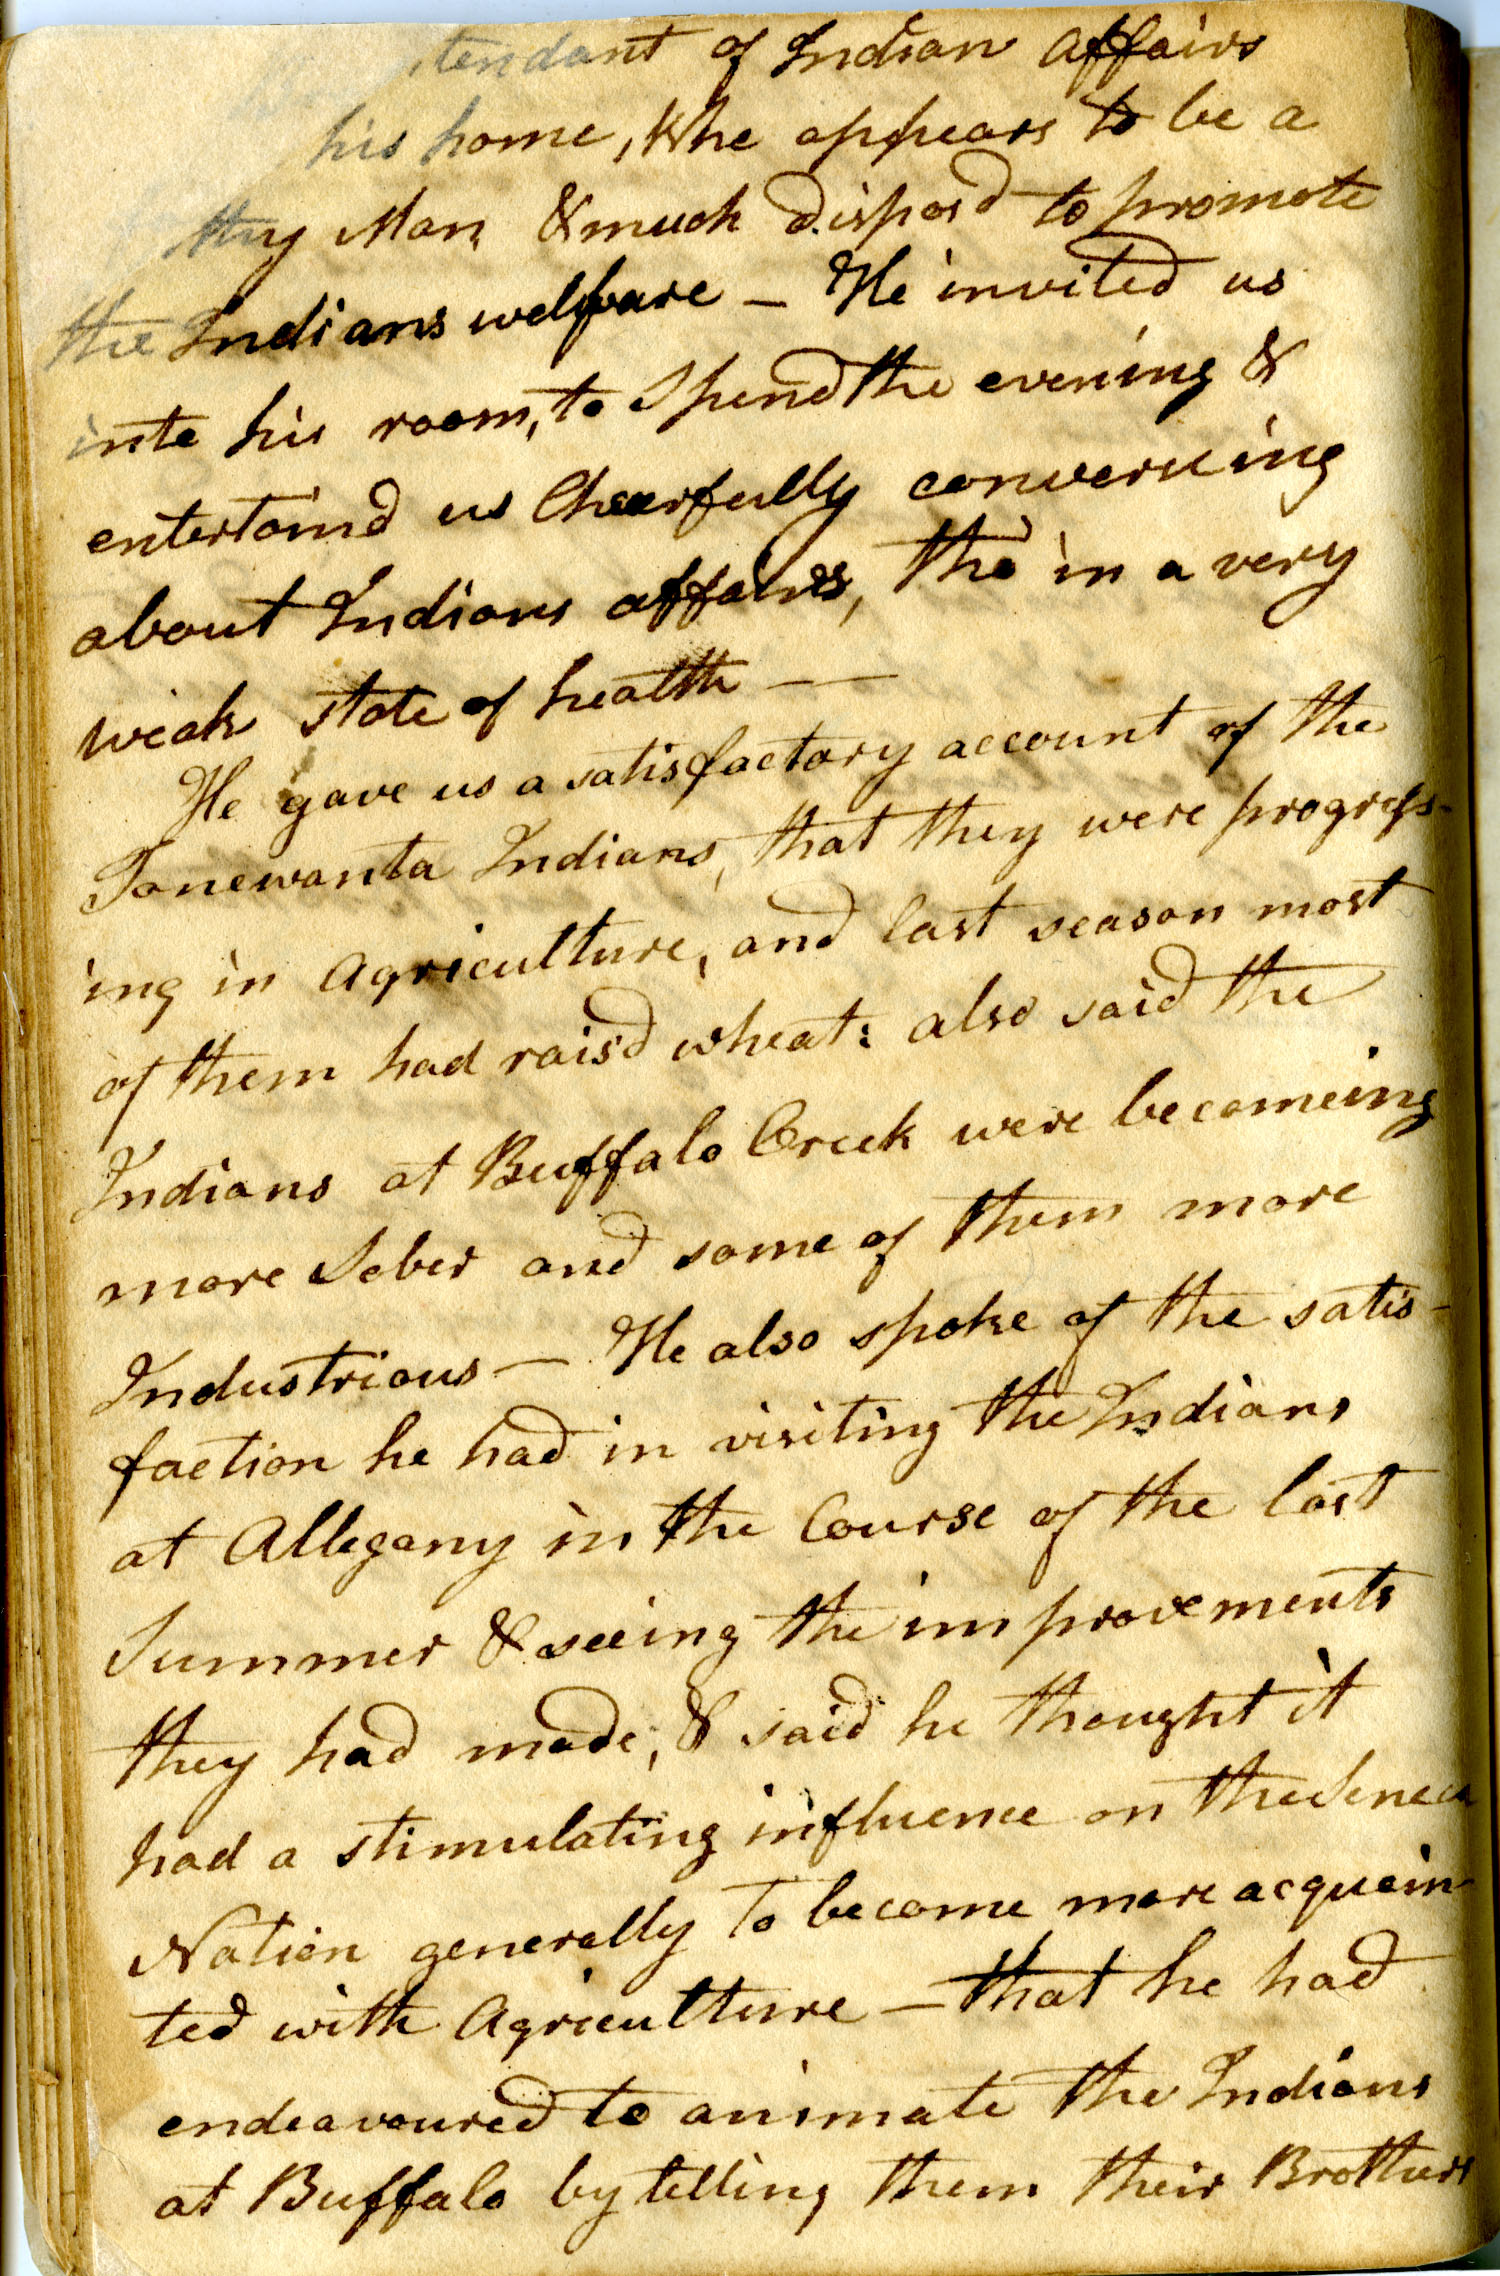 tendant of Indian Affairs
his home, & he appears to be a
thy Man & much dispos'd to promote
the Indians welfare — He invited us
into his room, to Spend the evening &
entertain'd us Chearfully conversing
about Indians affairs, tho' in a very
weak state of health —
He gave us a satisfactory account of the
Tonewanta Indians, that they were progress-
ing in Agriculture, and last season most
of them had rais'd wheat: also said the
Indians at Buffalo Creek were becomeing
more Sober and some of them more
Industrious — He also spoke of the satis-
faction he had in visiting the Indians
at Allegany in the Course of the last
Summer & seeing the improvements
they had made, & said he thought it
had a stimulating influence on the Seneca
Nation generally to become more acquain-
ted with Agriculture — that he had
endeavoured to animate the Indians
at Buffalo by telling them their Brothers